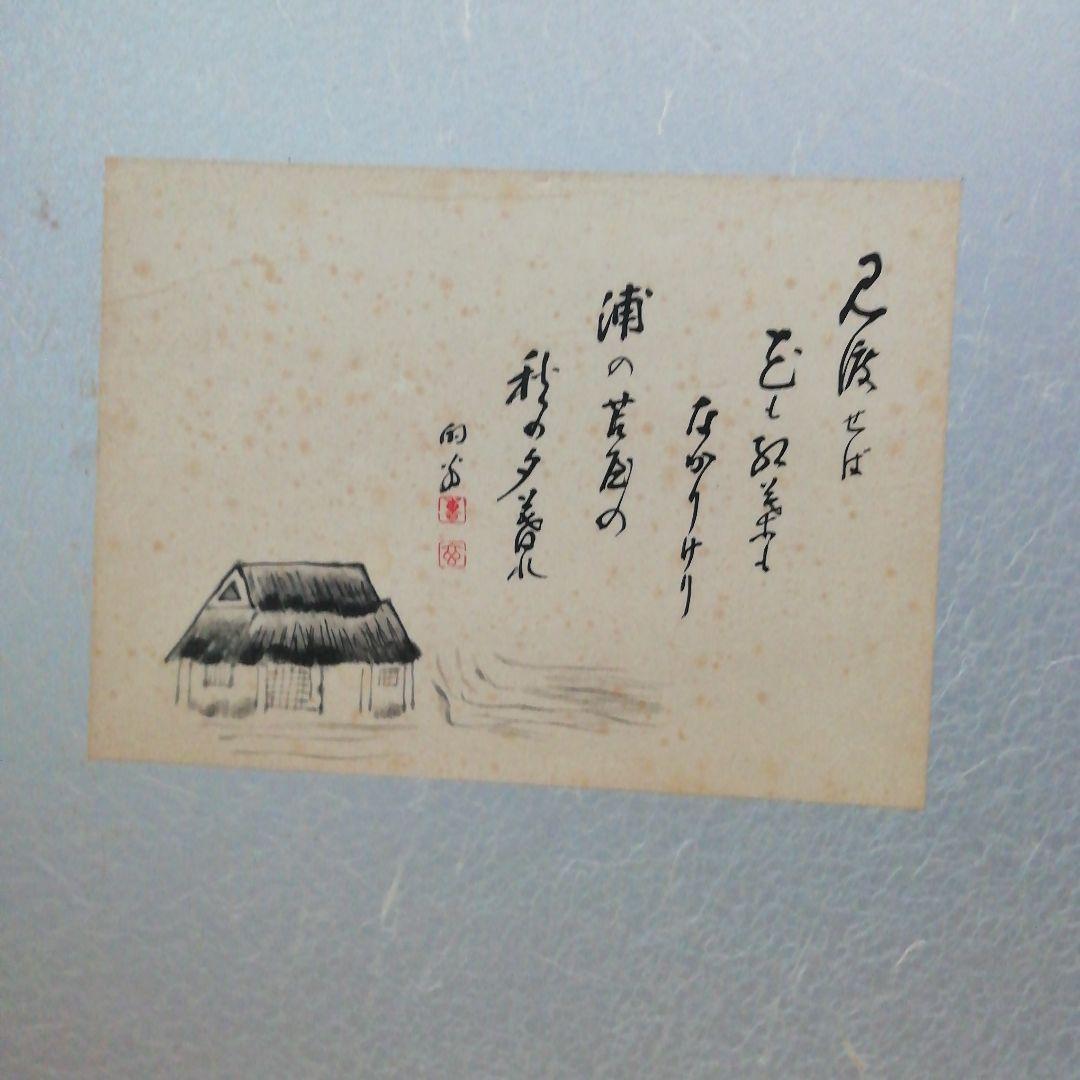 見渡せば
花も紅葉も
なかりけり
浦の苫屋の
秋の夕暮れ